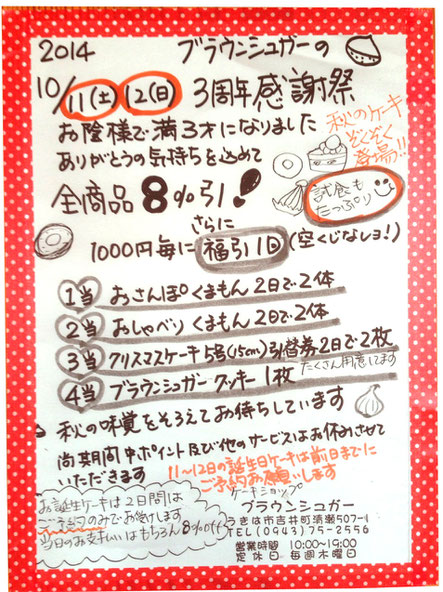 2014
ブラウンシュガーの
10/11(土)12(日) 3周年感謝祭
お陰様で満3才になりました
ありがとうの気持ちを込めて
秋のケーキ
ぞくぞく
登場!!
全商品8%引!
試食も
たっぷり
さらに
1000円毎に福引1回(空くじなしョ!)
1当 おさんぽくまもん 2日で2体
2当 おしゃべり くまもん 2日で2体
3当 クリスマスケーキ5号(15cm)引替券2日で2枚
たくさん用意してます
4当 ブラウンシュガー クッキー1枚
秋の味覚をそろえてお待ちしています
尚期間中ポイント及び他のサービスはお休みさせて
いただきます
11〜12日の誕生日ケーキは前日までに
ご予約お願いします
お誕生ケーキは2日間は
ご予約のみでお受けします
当日のお支払いはもちろん8%off
ケーキショップ
ブラウンシュガー
うきは市吉井町清瀬507-1
TEL(0943)75-2556
営業時間 10:00~19:00
定休日 毎週木曜日